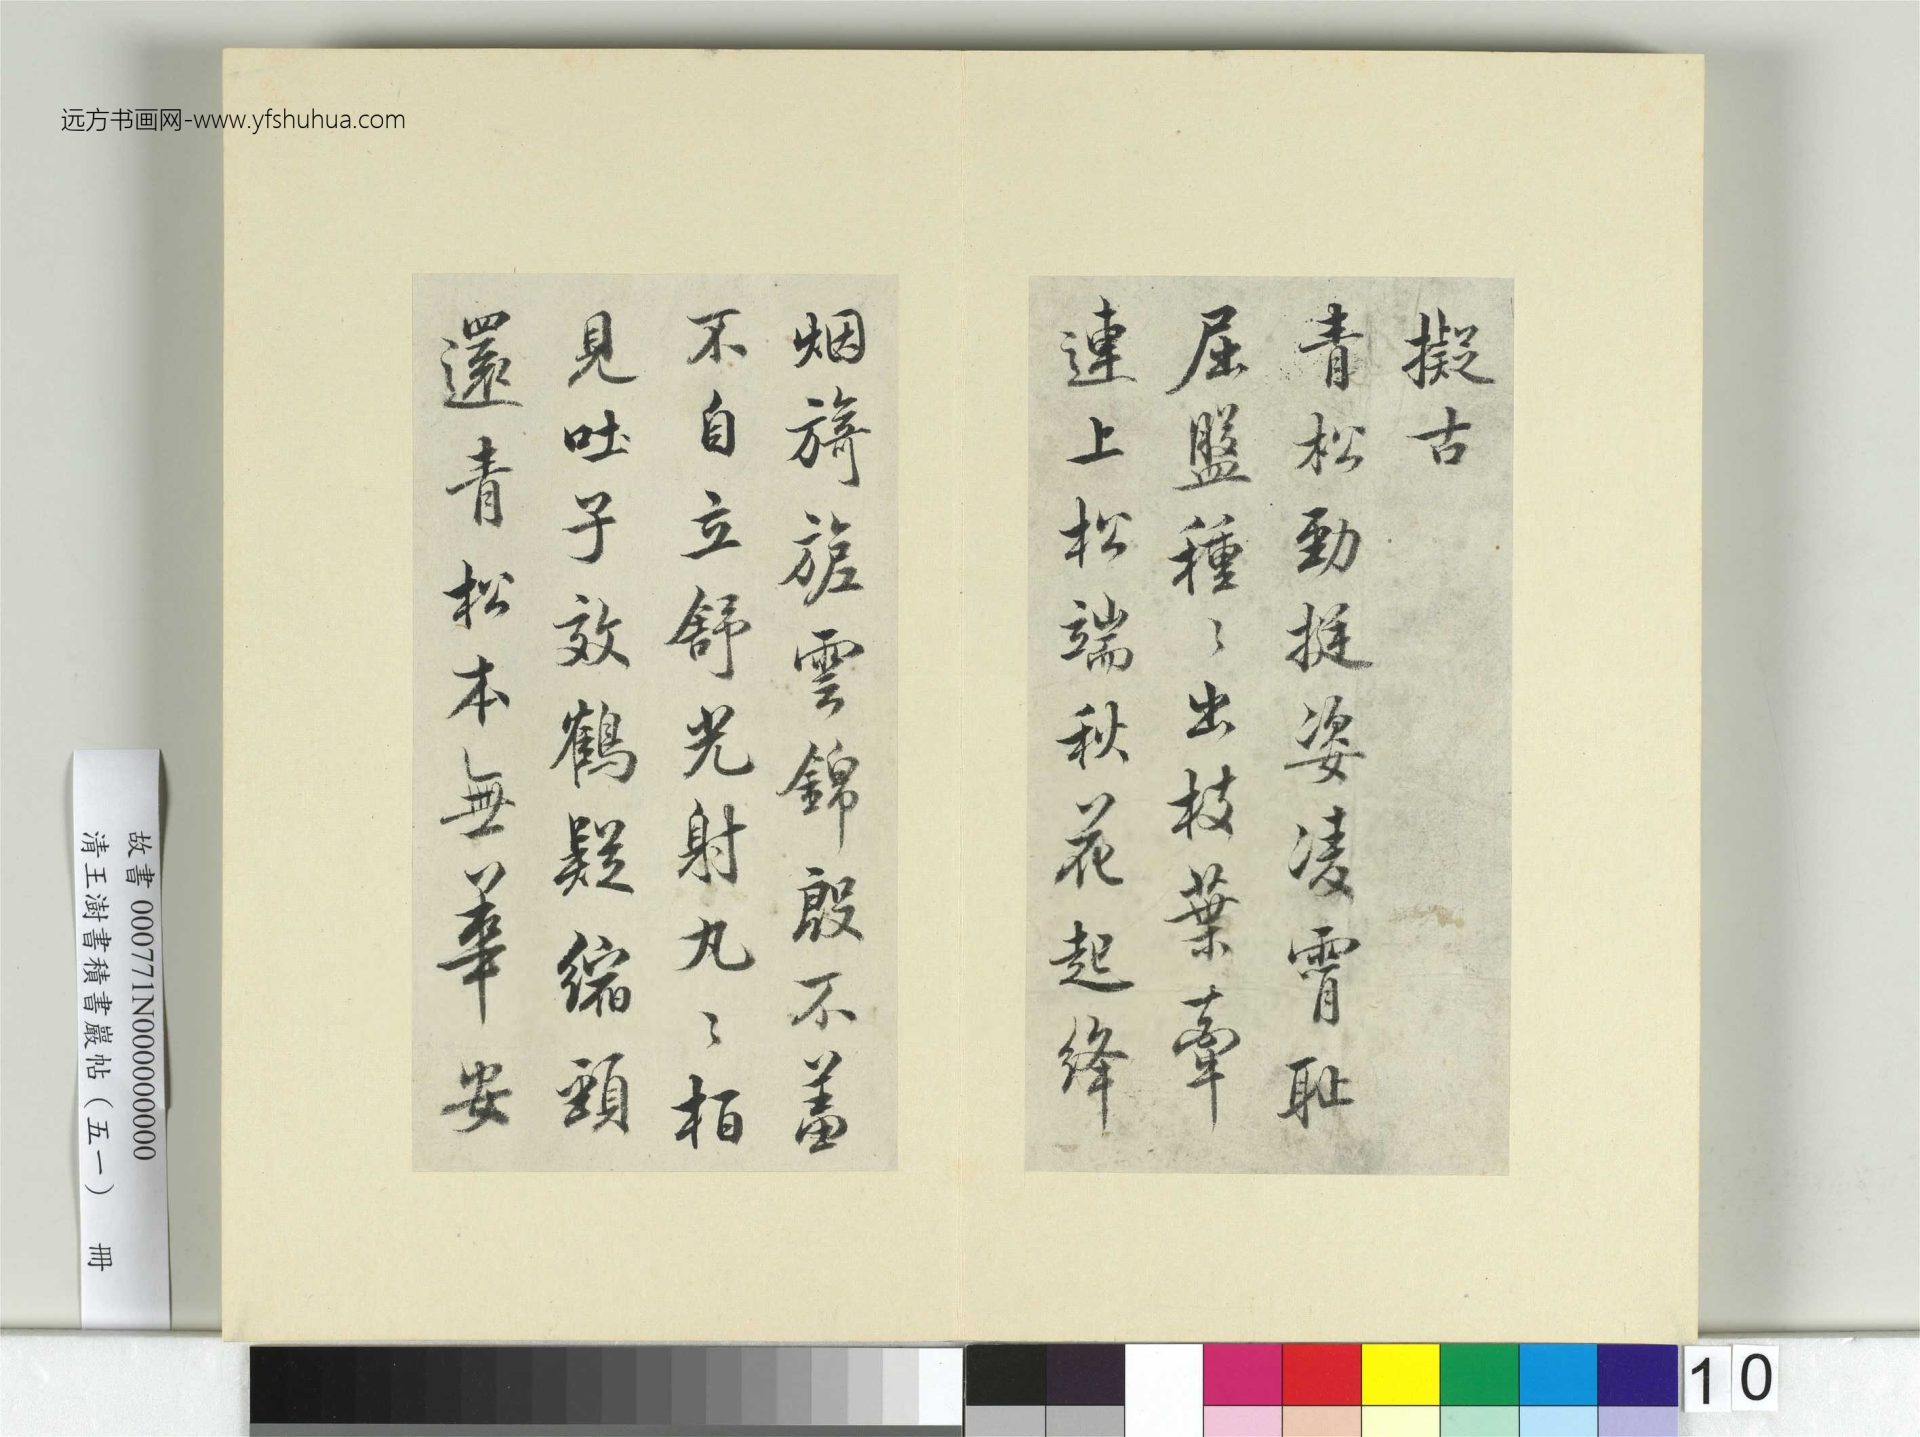 远方书画网-www.yfshuhua.com
擬古
青松勁挺姿凌霄耻
屈盤種〻出枝葉牽
連上松端秋花起絳
烟旖旎雲錦殷不羞
不自立舒光射丸〻柏
見吐子效鶴疑縮頸
還青松本無華安
故書 000771N000000000
清王澍書積書巖帖(五一) 冊
10